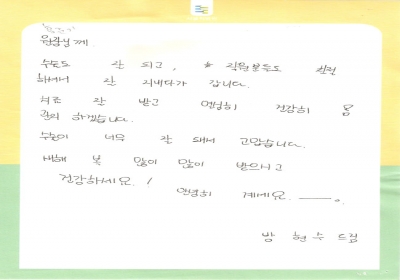 원장님께.
수술도 잘 되고, 직원분들도 친절
하셔서 잘 지내다가 갑니다.
치료 잘 받고 열심히 건강히 몸
관리 하겠습니다.
수술이 너무 잘 돼서 고맙습니다.
새해 복 많이 많이 받으시고
건강하세요!
안녕히 계세요.
방 현수 드림